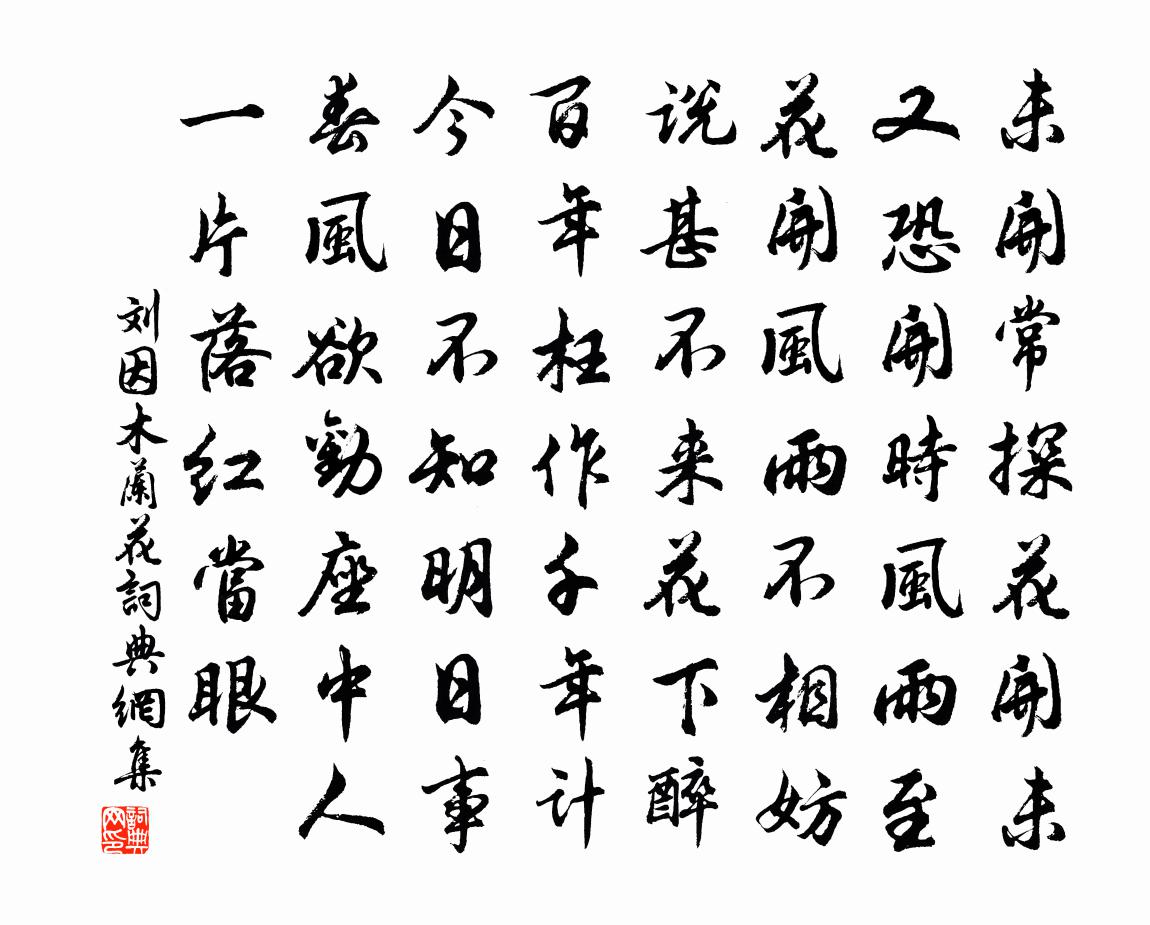 未開常探花開未
又恐開時風雨至
花開風雨不相妨
说甚不来花下醉
百年枉作千年计
今日不知明日事
春風欲勸座中人
一片落红當眼
刘因木蘭花詞典網集
詞典网印